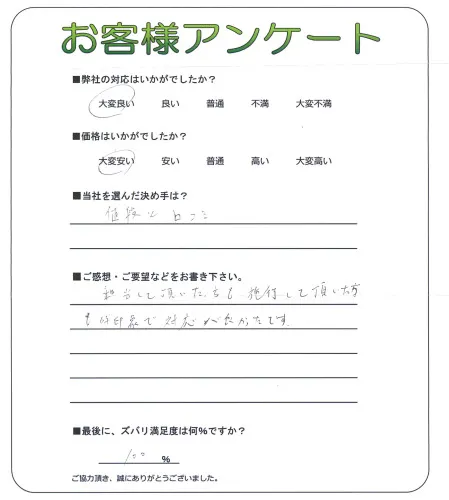 お客様アンケート
■弊社の対応はいかがでしたか？
大変良い 良い 普通 不満 大変不満
■価格はいかがでしたか？
大変安い 安い 普通 高い 大変高い
■当社を選んだ決め手は？
値段と口コミ
■ご感想・ご要望などをお書き下さい。
担当して頂いた方も 施行して頂いた方
も好印象で対応が良かったです。
■最後に、ズバリ満足度は何％ですか？
100 ％
ご協力頂き、誠にありがとうございました。